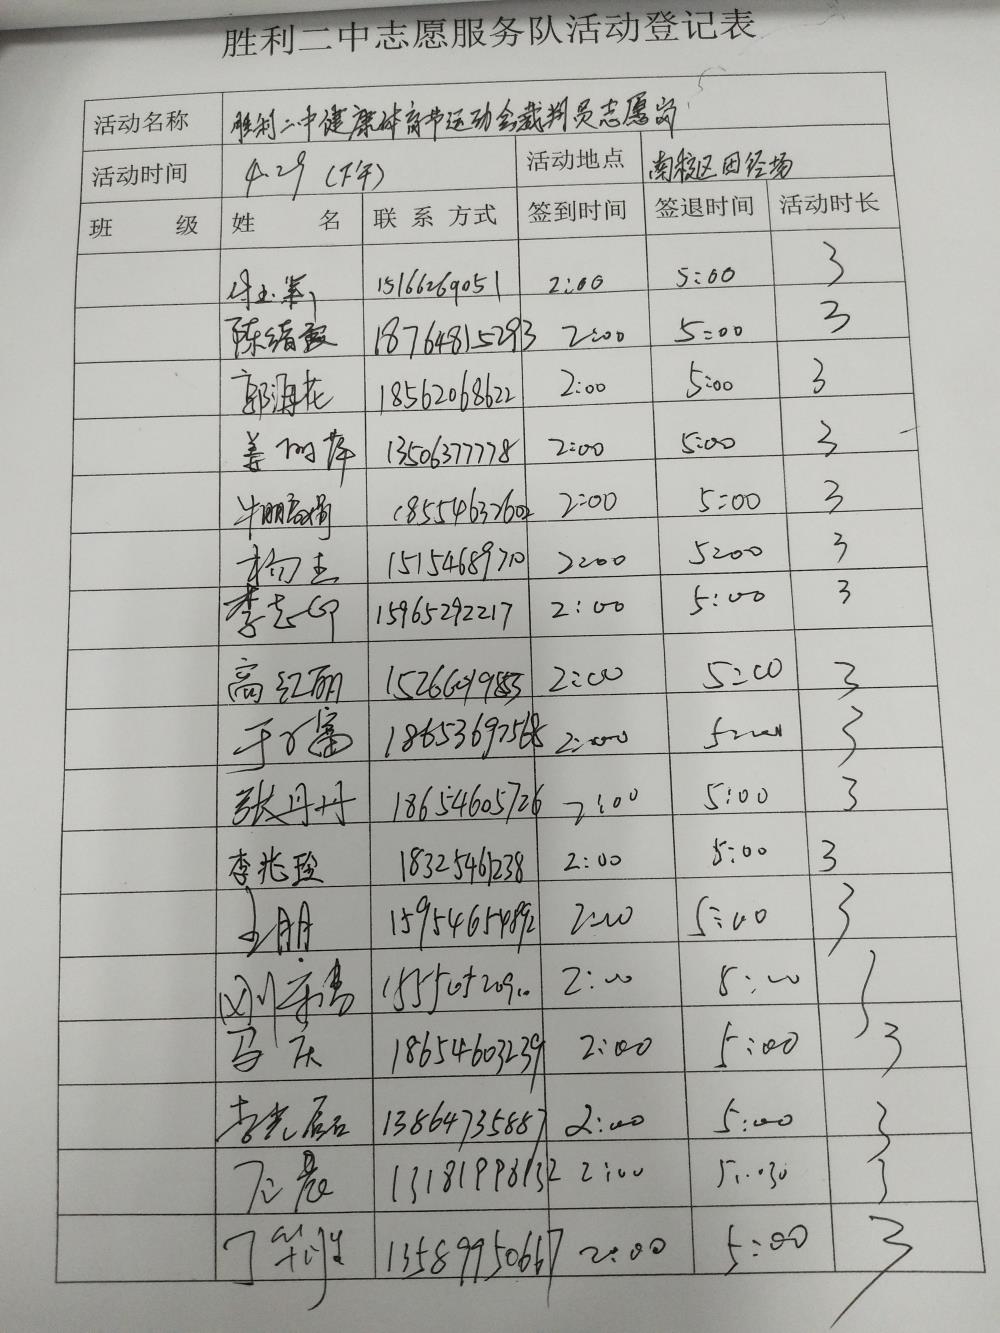 胜利二中志愿服务队活动登记表
活动名称 胜利二中健康体育节运动会裁判员志愿岗
活动时间 4.29（下午） 活动地点 南校区田径场
班 级 姓 名 联 系 方式 签到时间 签退时间 活动时长
15166269051 2:00 5:00 3
陈绪霞 18764815293 2:00 5:00 3
郭海花 18562068622 2:00 5:00 3
姜 萍 13506377778 2:00 5:00 3
18554637602 2:00 5:00 3
杨 1515468970 2:00 5:00 3
李志 15965292217 2:00 5:00 3
高红丽 2:00 5:00 3
于 富 18653697568 2:00 3
张丹丹 18654605726 2:00 5:00 3
李兆玲 18325461238 2:00 5:00 3
王朋 15954654892 2:00 5:00 3
刘 2:00 5:00
马庆 18654603239 2:00 5:00 3
李光 13864735887 2:00 5:00 3
13181998132 2:00 3
丁 13589950667 2:00 5:00 3